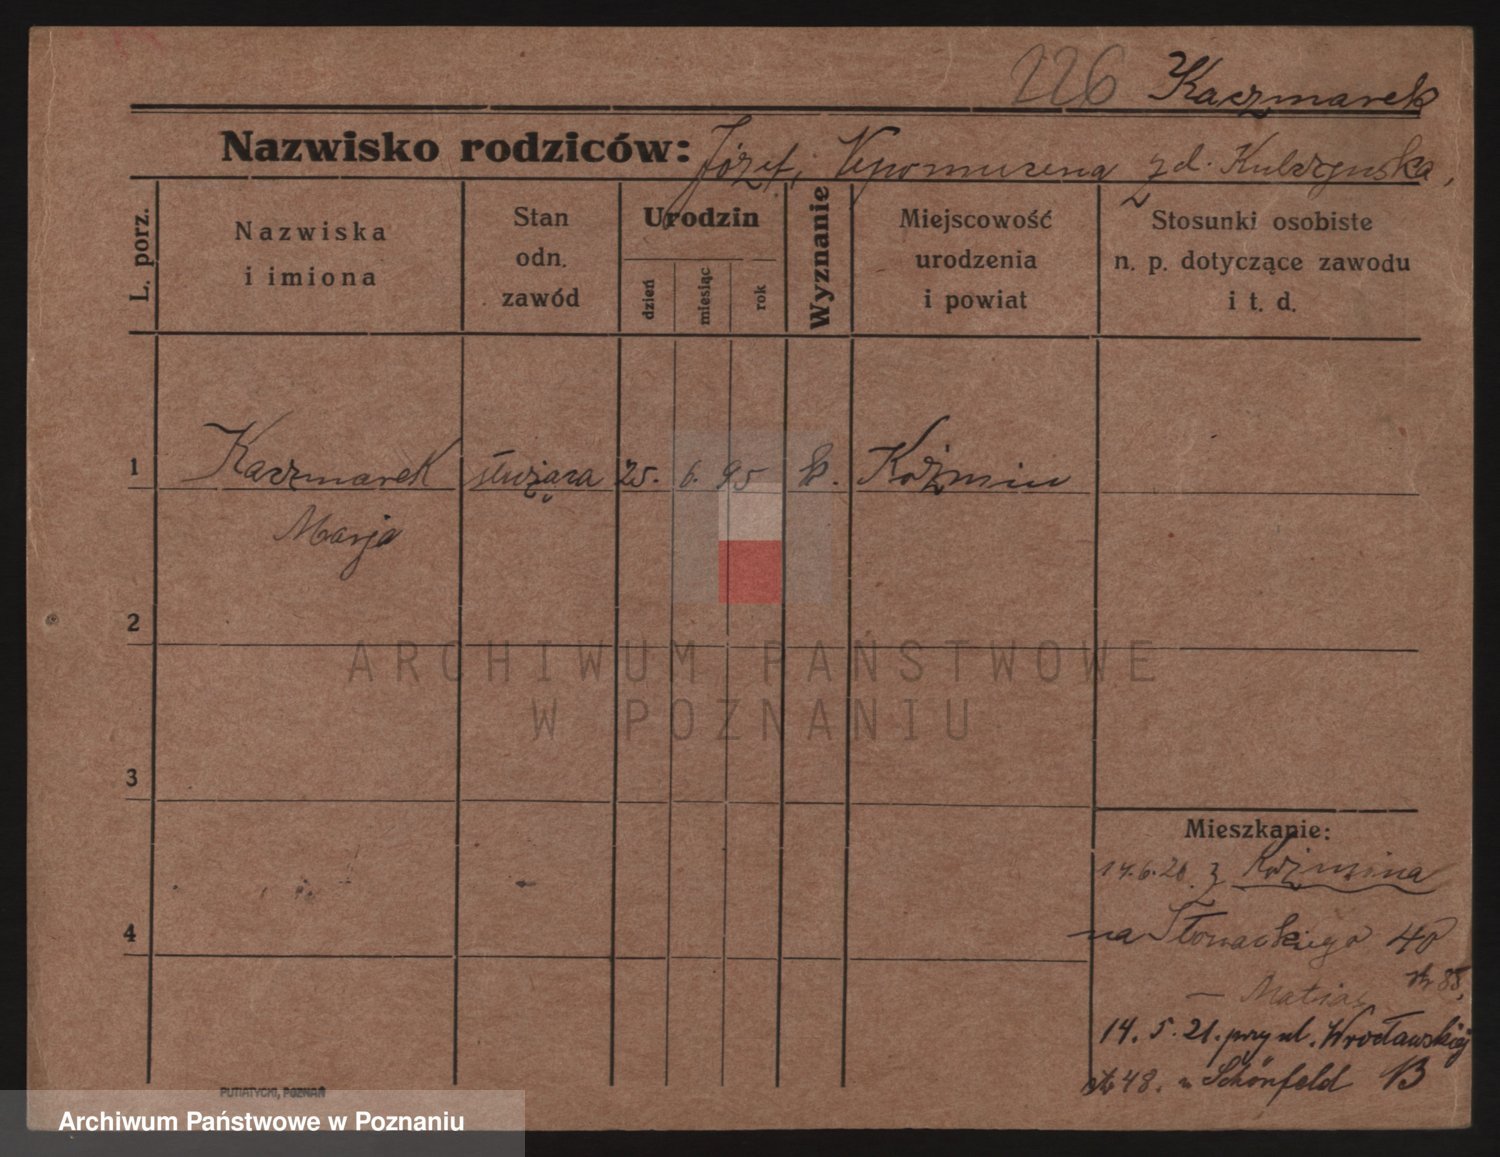 226 Kaczmarek
Nazwisko rodziców: Józef, Nepomucena z d.
L. porz.
Nazwiska
i imiona
Stan
odn.
zawód
Urodzin
dzień
miesiąc
rok
Wyznanie
Miejscowość
urodzenia
i powiat
Stosunki osobiste
n. p. dotyczące zawodu
i t. d.
1 Kaczmarek służąca 25. 6. 95 k. Koźmin
Marja
2
ARCHIWUM PAŃSTWOWE
W POZNANIU
3
Mieszkanie:
14.6.20. z Koźmina
na Słowackiego 40
str 85,
— Matias
4
14. 5. 21. przy ul. Wrocławskiej
str 48. u Schönfeld 13
PUTIATYCKI, POZNAŃ
Archiwum Państwowe w Poznaniu